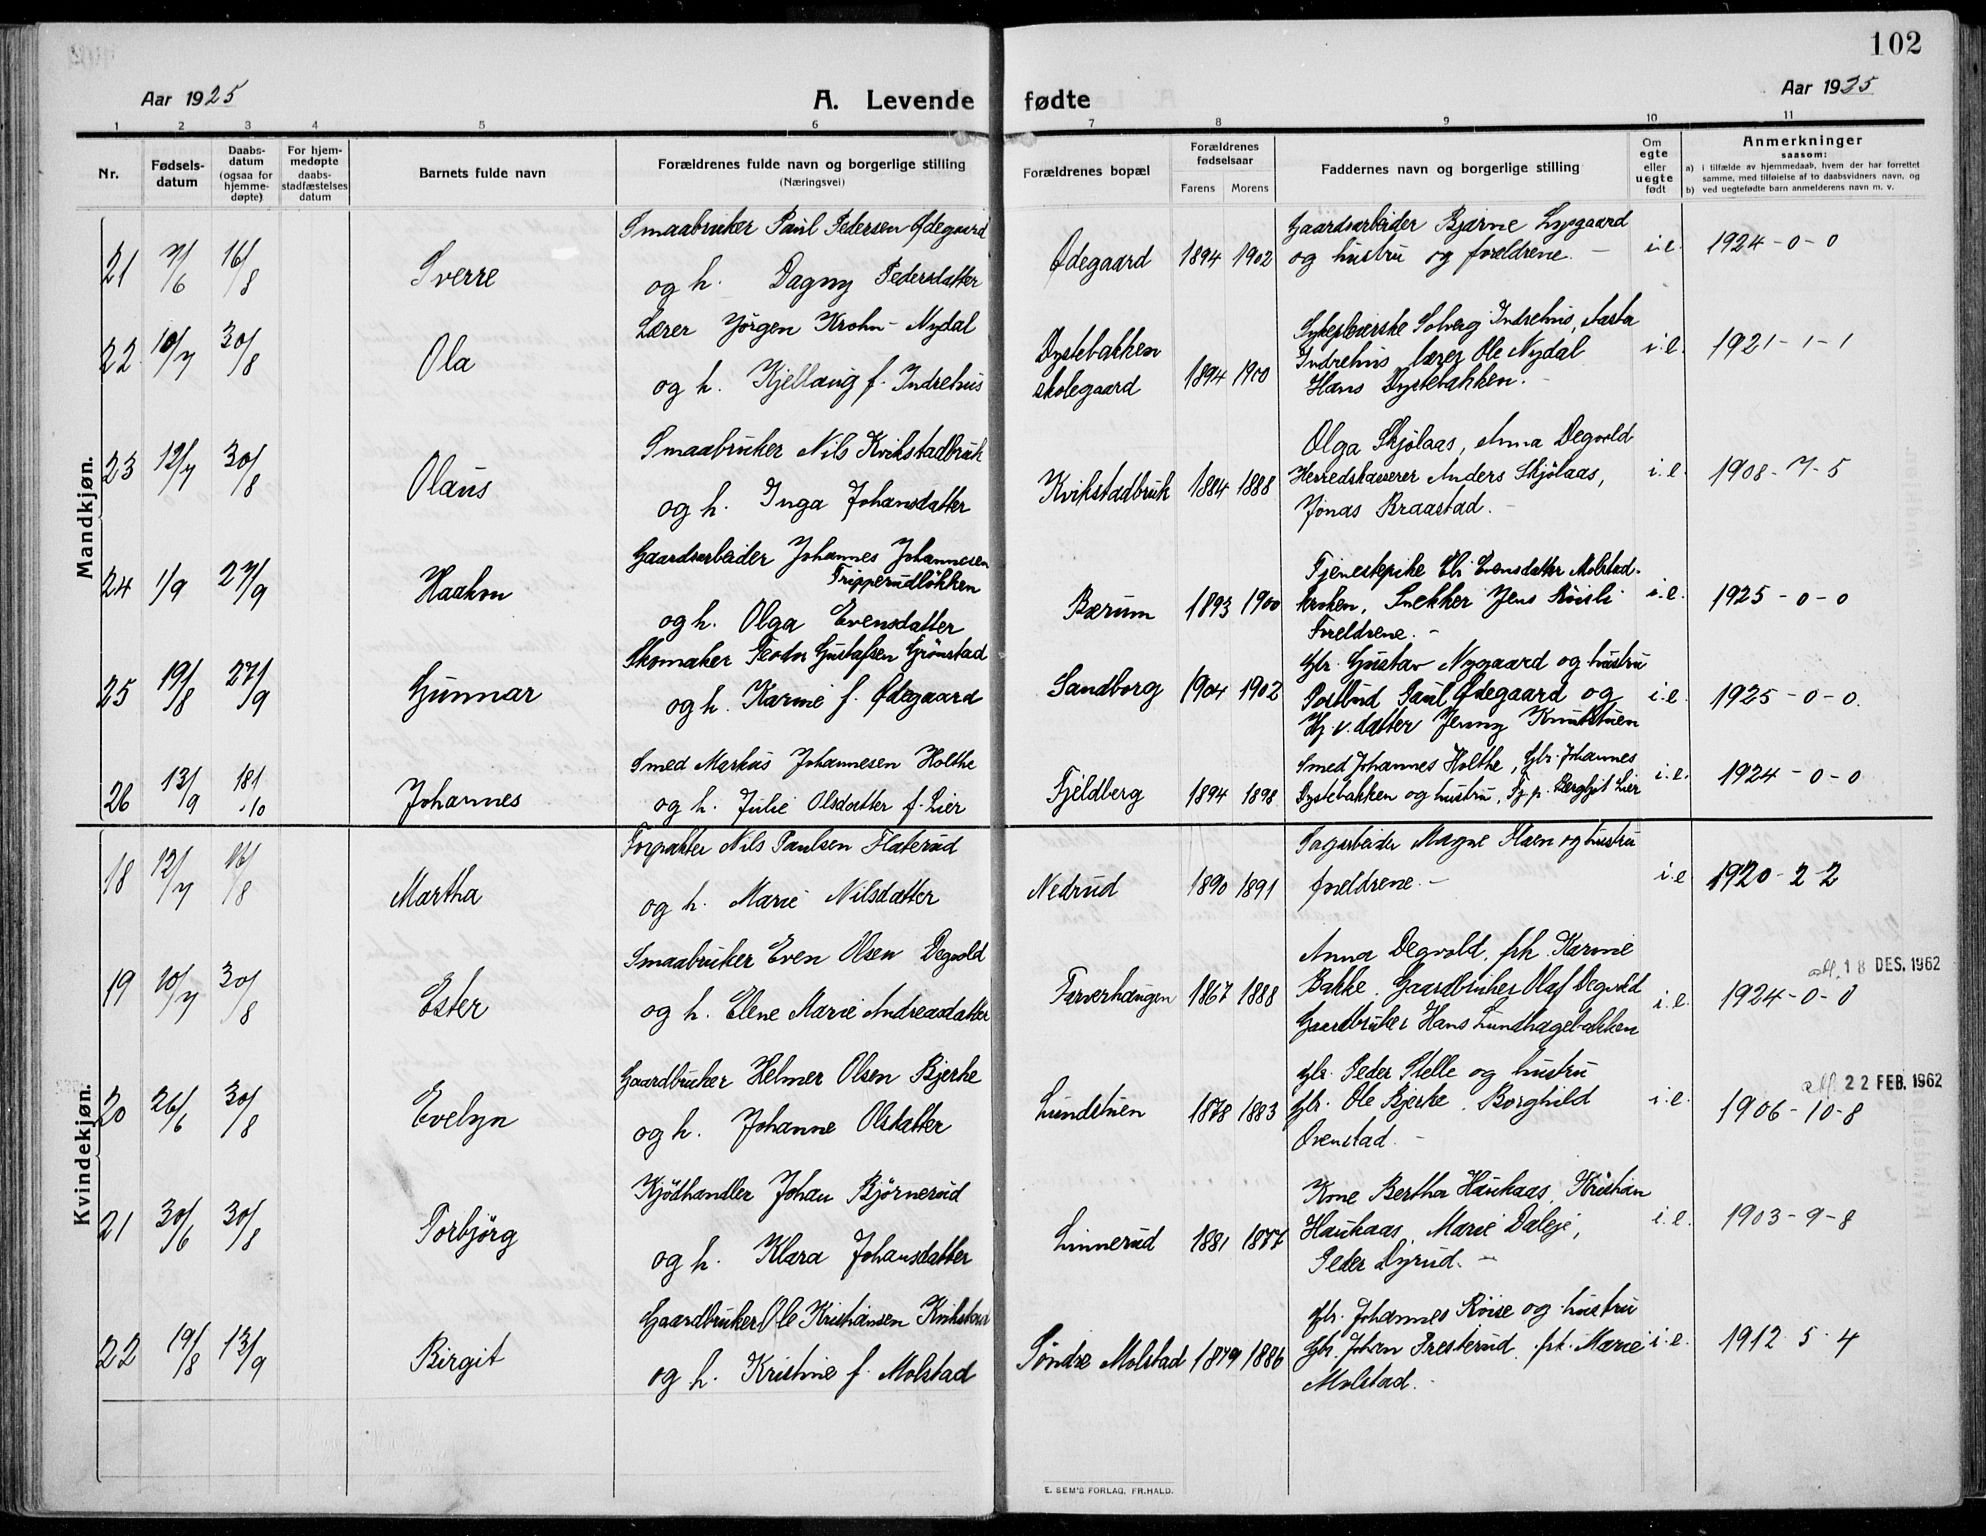 102
Aar 1925
A. Levende fødte
Aar 1925
1 2 3 4 5 6 7 8 9 10 11
Nr.
Fødsels-
datum
Daabs-
datum
(ogsaa for
hjemme-
døpte)
For hjem-
medøpte
daabs-
stadfæstelses
datum
Barnets fulde navn
Forældrenes fulde navn og borgerlige stilling
(Næringsvei)
Forældrenes bopæl
Forældrenes
fødselsaar
Farens Morens
Faddernes navn og borgerlige stilling
Om
egte
eller
uegte
født
Anmerkninger
saasom:
a) i tilfælde av hjemmedaab, hvem der har forrettet
samme, med tilføielse af to daabsvidners navn, og
b) ved uegtefødte barn anmelderens navn m. v.
Mandkjøn.
21 7/6 16/8 Sverre
Smaabruker Paul Pedersen Ødegaard
og h. Dagny Pedersdatter
Ødegaard 1894 1902
Gaardsarbeider Bjarne Lysgaard
og hustru og foreldrene. -
i.e. 1924-0-0
22 10/7 30/8 Ola
Lærer Jörgen Krohn-Nydal
og h. Kjellaug f. Indrehus
Dystebakken
skolegaard 1894 1900
Sykepleierske Solveig Indrehus, Aasta
Indrehus, lærer Ole Nydal
Hans Dystebakken. -
i.e. 1921-1-1
23 12/7 30/8 Olaus
Smaabruker Nils Kvikstadbruk
og h. Inga Johansdatter
Kvikstadbruk 1884 1888
Olga Skjölaas, Anna Degvold
Herredskasserer Anders Skjölaas,
Jonas Braastad. -
i.e. 1908-7-5
24 1/9 27/9 Haakon
Gaardsarbeider Johannes Johannesen
Tripperudlökken
og h. Olga Evensdatter
Bærum 1893 1900
Tjenestepike Eli Evensdatter Molstad-
kroken, Snekker Jens
Foreldrene. -
i.e. 1925-0-0
25 19/8 27/9 Gunnar
Skomaker Teodor Gustafsen Grönstad
og h. Karine f. Ødegaard
Sandborg 1904 1902
Gbr. Gustav Nygaard og hustru
Postbud Paul Ødegaard og
Hj.v. datter Jenny Knutstuen
i.e. 1925-0-0.
26 13/9 18/10 Johannes
Smed Markus Johannesen Holthe
og h. Julie Olsdatter f. Lier
Fjeldberg 1894 1898
Smed Johannes Holthe, Gbr. Johannes
Dystebakken og hustru, Tj.p. Bergljot Lier
i.e. 1924-0-0
Kvindekjøn.
18 12/7 16/8 Martha
Forpakter Nils Paulsen Flaterud
og h. Marie Nilsdatter
Nedrud 1890 1891
Sagarbeider Magne Haen og hustru
foreldrene. -
i.e. 1920-2-2
19 10/7 30/8 Ester
Smaabruker Even Olsen Degvold
og h. Elene Marie Andreasdatter
Farverhaugen 1867 1888
Anna Degvold, frk. Karine
Bakke. Gaardbruker Olaf Degvold
Gaardbruker Hans Lundhagebakken
i.e. 18 DES. 1962
1924-0-0
20 26/6 30/8 Evelyn
Gaardbruker Helmer Olsen Bjerke
og h. Johanne Olsdatter
Lundstuen 1878 1883
Gbr. Peder Stelle og hustru
Gbr. Ole Bjerke. Borghild
Ovenstad. -
i.e. 22 FEB. 1962
1906-10-8
21 30/6 30/8 Torbjörg
Kjödhandler Johan Björnerud
og h. Klara Johansdatter
Linnerud 1881 1877
Kone Bertha Haukaas, Kristian
Haukaas, Marie Daleje,
Peder Dyrud. -
i.e. 1903-9-8
22 19/8 13/9 Birgit
Gaardbruker Ole Kristiansen Kvikstad
og h. Kristine f. Molstad
Söndre Molstad 1879 1886
Gbr. Johannes Röise og hustru
Gbr. Johan Presterud. frk. Marie
Molstad. -
i.e. 1912-5-4
E. SEM'S FORLAG, FR.HALD.